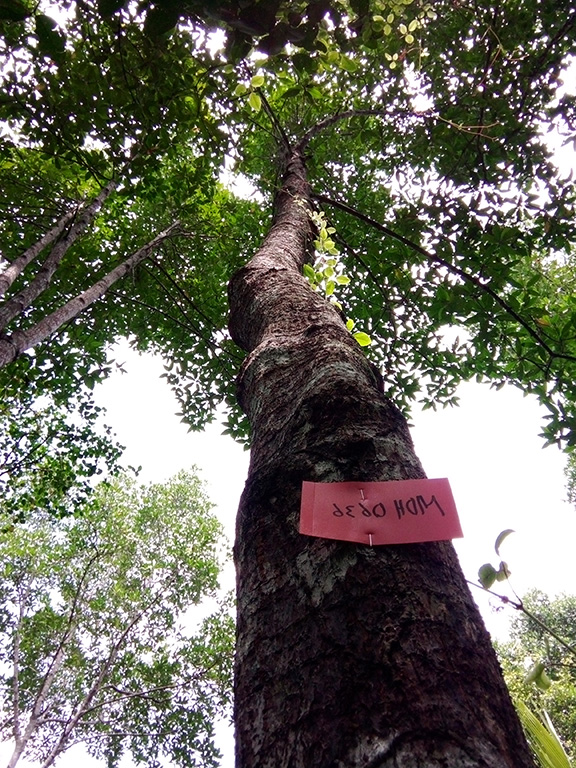 WDH 0636